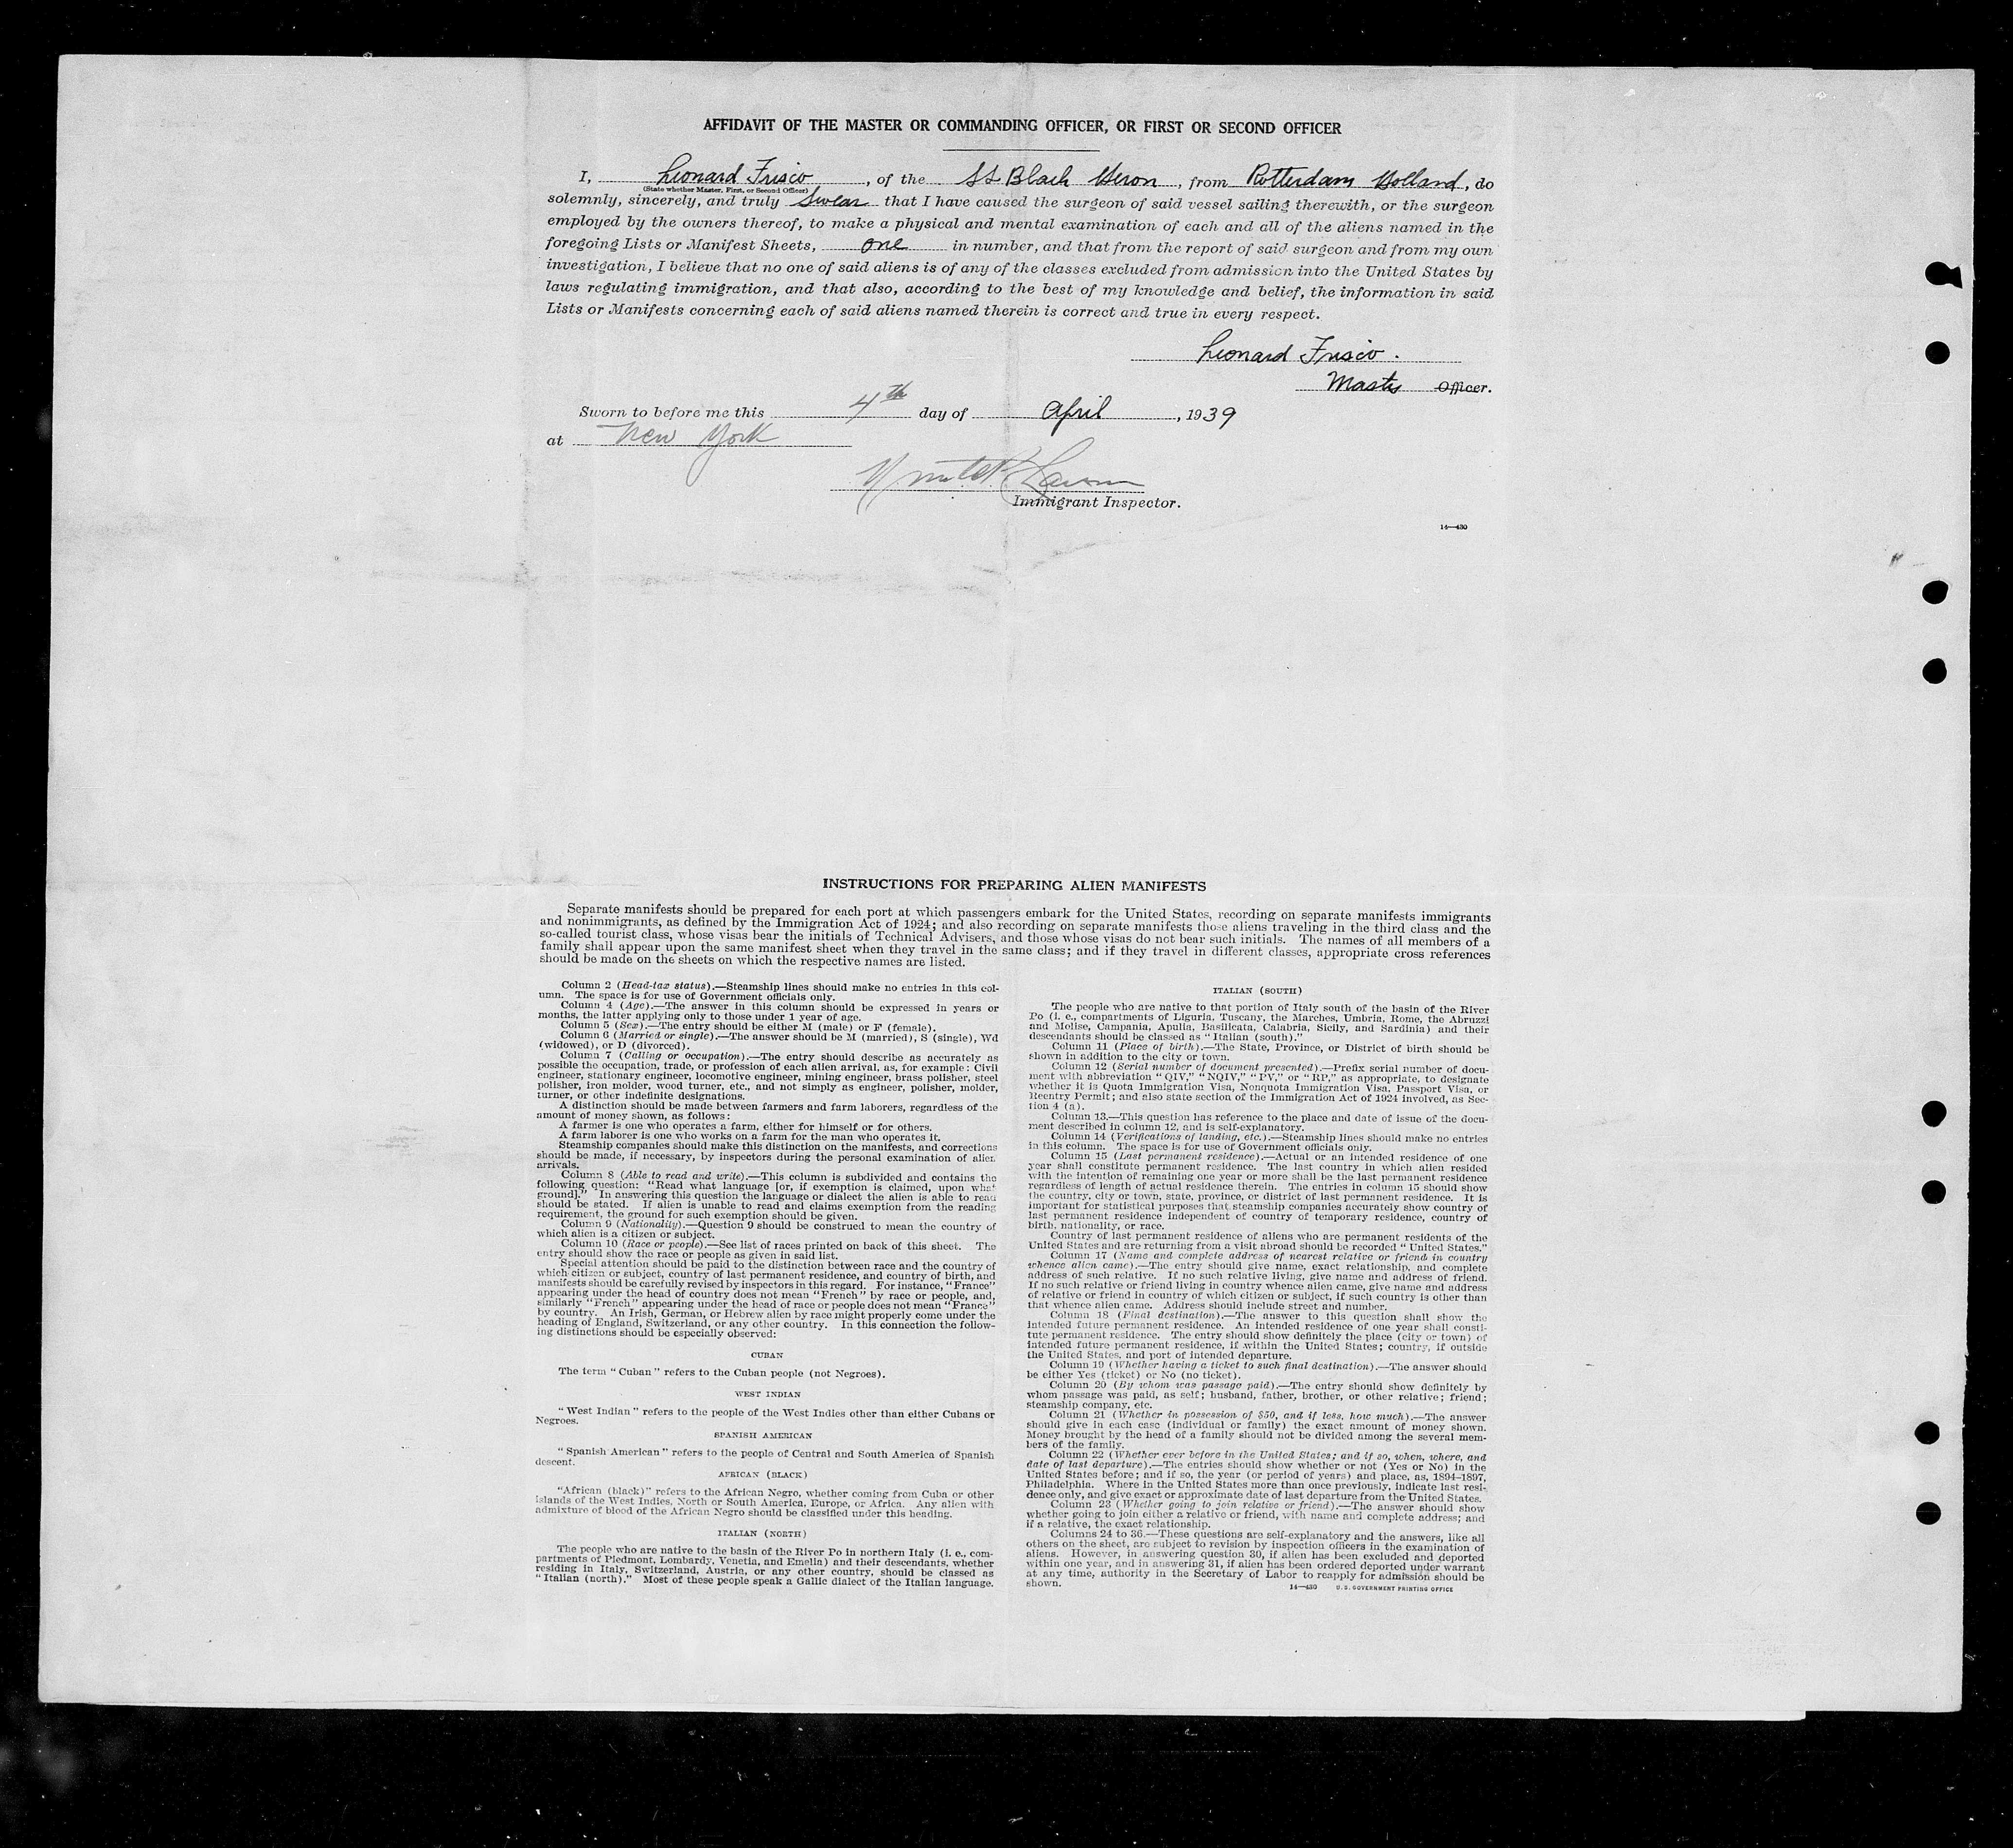 AFFIDAVIT OF THE MASTER OR COMMANDING OFFICER, OR FIRST OR SECOND OFFICER
I, Leonard Frisco, of the SS Black Heron, from Rotterdam Holland, do
(State whether Master, First, or Second Officer)
solemnly, sincerely, and truly swear that I have caused the surgeon of said vessel sailing therewith, or the surgeon
employed by the owners thereof, to make a physical and mental examination of each and all of the aliens named in the
foregoing Lists or Manifest Sheets, one in number, and that from the report of said surgeon and from my own
investigation, I believe that no one of said aliens is of any of the classes excluded from admission into the United States by
laws regulating immigration, and that also, according to the best of my knowledge and belief, the information in said
Lists or Manifests concerning each of said aliens named therein is correct and true in every respect.
Leonard Frisco.
Master Officer.
Sworn to before me this 4th day of April, 1939
at New York
Immigrant Inspector.
14—430
INSTRUCTIONS FOR PREPARING ALIEN MANIFESTS
Separate manifests should be prepared for each port at which passengers embark for the United States, recording on separate manifests immigrants
and nonimmigrants, as defined by the Immigration Act of 1924; and also recording on separate manifests those aliens traveling in the third class and the
so-called tourist class, whose visas bear the initials of Technical Advisers, and those whose visas do not bear such initials. The names of all members of a
family shall appear upon the same manifest sheet when they travel in the same class; and if they travel in different classes, appropriate cross references
should be made on the sheets on which the respective names are listed.
Column 2 (Head-tax status).—Steamship lines should make no entries in this col-
umn. The space is for use of Government officials only.
Column 4 (Age).—The answer in this column should be expressed in years or
months, the latter applying only to those under 1 year of age.
Column 5 (Sex).—The entry should be either M (male) or F (female).
Column 6 (Married or single).—The answer should be M (married), S (single), Wd
(widowed), or D (divorced).
Column 7 (Calling or occupation).—The entry should describe as accurately as
possible the occupation, trade, or profession of each alien arrival, as, for example: Civil
engineer, stationary engineer, locomotive engineer, mining engineer, brass polisher, steel
polisher, iron molder, wood turner, etc., and not simply as engineer, polisher, molder,
turner, or other indefinite designations.
A distinction should be made between farmers and farm laborers, regardless of the
amount of money shown, as follows:
A farmer is one who operates a farm, either for himself or for others.
A farm laborer is one who works on a farm for the man who operates it.
Steamship companies should make this distinction on the manifests, and corrections
should be made, if necessary, by inspectors during the personal examination of alien
arrivals.
Column 8 (Able to read and write).—This column is subdivided and contains the
following question: "Read what language [or, if exemption is claimed, upon what
ground]." In answering this question the language or dialect the alien is able to read
should be stated. If alien is unable to read and claims exemption from the reading
requirement, the ground for such exemption should be given.
Column 9 (Nationality).—Question 9 should be construed to mean the country of
which alien is a citizen or subject.
Column 10 (Race or people).—See list of races printed on back of this sheet. The
entry should show the race or people as given in said list.
Special attention should be paid to the distinction between race and the country of
which citizen or subject, country of last permanent residence, and country of birth, and
manifests should be carefully revised by inspectors in this regard. For instance, "France"
appearing under the head of country does not mean "French" by race or people, and,
similarly "French" appearing under the head of race or people does not mean "France"
by country. An Irish, German, or Hebrew alien by race might properly come under the
heading of England, Switzerland, or any other country. In this connection the follow-
ing distinctions should be especially observed:
CUBAN
The term "Cuban" refers to the Cuban people (not Negroes).
WEST INDIAN
"West Indian" refers to the people of the West Indies other than either Cubans or
Negroes.
SPANISH AMERICAN
"Spanish American" refers to the people of Central and South America of Spanish
descent.
AFRICAN (BLACK)
"African (black)" refers to the African Negro, whether coming from Cuba or other
islands of the West Indies, North or South America, Europe, or Africa. Any alien with
admixture of blood of the African Negro should be classified under this heading.
ITALIAN (NORTH)
The people who are native to the basin of the River Po in northern Italy (i. e., com-
partments of Piedmont, Lombardy, Venetia, and Emelia) and their descendants, whether
residing in Italy, Switzerland, Austria, or any other country, should be classed as
"Italian (north)." Most of these people speak a Gallic dialect of the Italian language.
ITALIAN (SOUTH)
The people who are native to that portion of Italy south of the basin of the River
Po (i. e., compartments of Liguria, Tuscany, the Marches, Umbria, Rome, the Abruzzi
and Molise, Campania, Apulia, Basilicata, Calabria, Sicily, and Sardinia) and their
descendants should be classed as "Italian (south)."
Column 11 (Place of birth).—The State, Province, or District of birth should be
shown in addition to the city or town.
Column 12 (Serial number of document presented).—Prefix serial number of docu-
ment with abbreviation "QIV," "NQIV," "PV," or "RP," as appropriate, to designate
whether it is Quota Immigration Visa, Nonquota Immigration Visa, Passport Visa, or
Reentry Permit; and also state section of the Immigration Act of 1924 involved, as Sec-
tion 4 (a).
Column 13.—This question has reference to the place and date of issue of the docu-
ment described in column 12, and is self-explanatory.
Column 14 (Verifications of landing, etc.).—Steamship lines should make no entries
in this column. The space is for use of Government officials only.
Column 15 (Last permanent residence).—Actual or an intended residence of one
year shall constitute permanent residence. The last country in which alien resided
with the intention of remaining one year or more shall be the last permanent residence
regardless of length of actual residence therein. The entries in column 15 should show
the country, city or town, state, province, or district of last permanent residence. It is
important for statistical purposes that steamship companies accurately show country of
last permanent residence independent of country of temporary residence, country of
birth, nationality, or race.
Country of last permanent residence of aliens who are permanent residents of the
United States and are returning from a visit abroad should be recorded "United States."
Column 17 (Name and complete address of nearest relative or friend in country
whence alien came).—The entry should give name, exact relationship, and complete
address of such relative. If no such relative living, give name and address of friend.
If no such relative or friend living in country whence alien came, give name and address
of relative or friend in country of which citizen or subject, if such country is other than
that whence alien came. Address should include street and number.
Column 18 (Final destination).—The answer to this question shall show the
intended future permanent residence. An intended residence of one year shall consti-
tute permanent residence. The entry should show definitely the place (city or town) of
intended future permanent residence, if within the United States; country, if outside
the United States, and port of intended departure.
Column 19 (Whether having a ticket to such final destination).—The answer should
be either Yes (ticket) or No (no ticket).
Column 20 (By whom was passage paid).—The entry should show definitely by
whom passage was paid, as self; husband, father, brother, or other relative; friend;
steamship company, etc.
Column 21 (Whether in possession of $50, and if less, how much).—The answer
should give in each case (individual or family) the exact amount of money shown.
Money brought by the head of a family should not be divided among the several mem-
bers of the family.
Column 22 (Whether ever before in the United States; and if so, when, where, and
date of last departure).—The entries should show whether or not (Yes or No) in the
United States before; and if so, the year (or period of years) and place, as, 1894–1897,
Philadelphia. Where in the United States more than once previously, indicate last resi-
dence only, and give exact or approximate date of last departure from the United States.
Column 23 (Whether going to join relative or friend).—The answer should show
whether going to join either a relative or friend, with name and complete address; and
if a relative, the exact relationship.
Columns 24 to 36.—These questions are self-explanatory and the answers, like all
others on the sheet, are subject to revision by inspection officers in the examination of
aliens. However, in answering question 30, if alien has been excluded and deported
within one year, and in answering 31, if alien has been ordered deported under warrant
at any time, authority in the Secretary of Labor to reapply for admission should be
shown.
14—430 U. S. GOVERNMENT PRINTING OFFICE